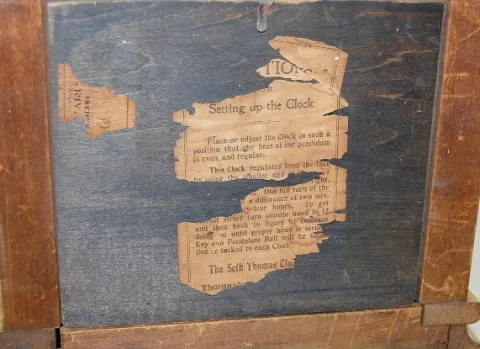 TIO
Setting up the Clock
Place or adjust the Clock in such a
position that the beat of the pendulum
is even and regular.
This Clock regulates from the face
by using the smaller end
right,
One full turn of the
a difference of two min-
hours. To get
strike turn minute hand to 12
and then back to figure 9
doing so until proper hour is
Key and Pendulum Ball will be
tacked to each Cloc
The Seth Thomas Clo
Thomas